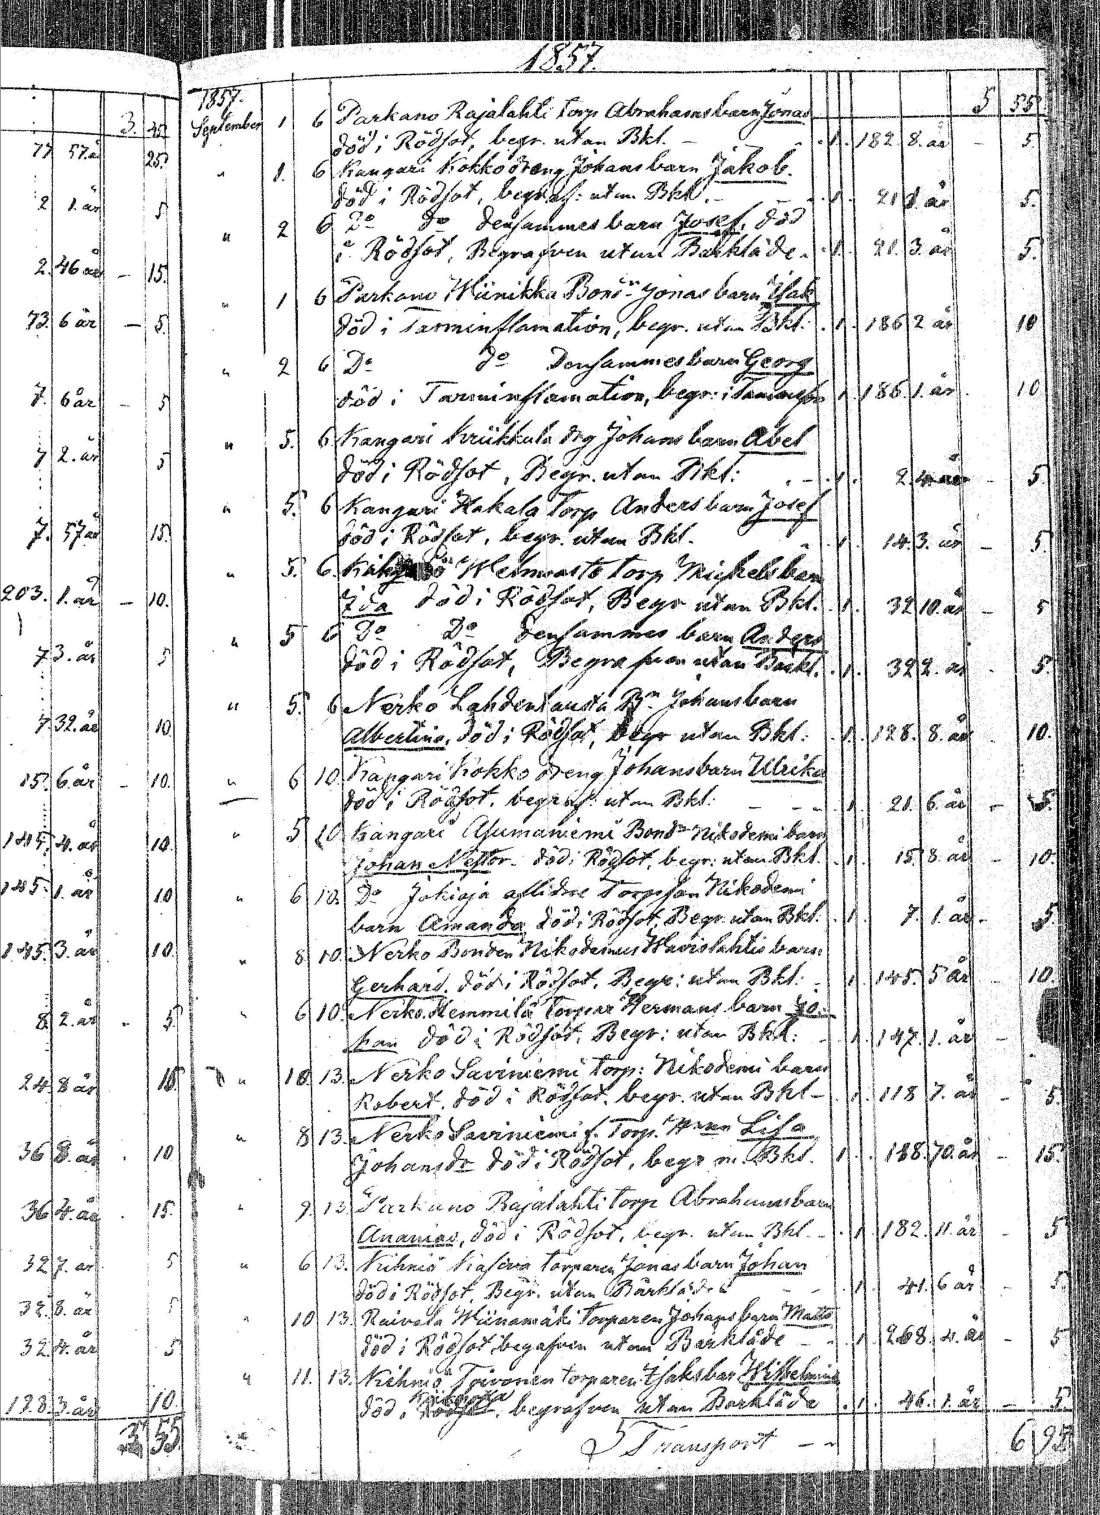 1857.
3. 45.
77 57.år 25.
2 1.år 5
2. 46 år — 15.
73. 6 år — 5.
7. 6 år — 5
7 2. år 5
7. 57 år 15.
203. 1. år — 10.
7 3. år 5
7 32. år 10
15. 6 år — 10.
145. 4. år 10.
145. 1. år 10
145. 3 år 10.
8 2. år - 5
24 8 år 10.
36 8. år . 10
36 4. år . 15.
32 7. år 5
32. 8. år 5
32 4. år 5
128. 3. år 10.
3 55
1857. 5 55
September 1 6 Parkano Rajalahti Torp Abrahams barn Jonas
död i Rödsot, begr. utan Bkl. — 1. 182. 8. år — 5.
" 1. 6 Kangari Kokko dreng Johans barn Jakob.
död i Rödsot, begraf: utan Bkl. — 1. 21 år 5.
" 2 6 Do do densammes barn Josef, död
i Rödsot, Begrafven utan Barkläde. 1. 21. 3. år 5.
" 1 6 Parkano Wiinikka Bond:n Jonas barn Isak
död i Tarminflamation, begr. utan Bkl. 1. 186 2 år 10
" 2 6 Do do Densammes barn Georg
död i Tarminflamation, begr: i 1. 186. 1. år 10
" 5. 6 Kangari Kriikkula drg Johans barn Abel
död i Rödsot, Begr. utan Bkl: 1. 2. 4 år — 5.
" 5. 6 Kangari Hakala Torp Anders barn Josef
död i Rödsot, begr. utan Bkl. 1. 14. 3. år — 5.
" 5. 6. torp Mickels barn
Ida död i Rödsot, Begr utan Bkl. 1. 32 10. år — 5
" 5 6 Do Do densammes barn Anders
död i Rödsot, Begrafven utan Barkl. 1. 32 2. år 5.
" 5. 6 Nerko Lahdentausta B:n Johans barn
Albertina, död i Rödsot, begr utan Bkl: 1. 128. 8. år 10.
" 6 10. Kangari Kokko dreng Johans barn Ulrika
död i Rödsot, begraf: utan Bkl: — 1. 21. 6. år — 5.
" 5 10 Kangari Asumaniemi Bond:n Nikodemi barn
Johan Nestor. död i Rödsot, begr: utan Bkl. 1. 15 8. år — 10.
" 6 10. Do Jokioja aflidne Torp son Nikodemi
barn Amanda, död i Rödsot, Begr. utan Bkl. 1. 7. 1. år — 5.
" 8 10. Nerko Bonden Nikodemus Haviolahtis barn
Gerhard. död i Rödsot. Begr: utan Bkl: 1. 145. 5 år 10.
" 6 10. Nerko Hemmilä Torpar Hermans barn Jo-
han död i Rödsot. Begr: utan Bkl: — 1. 147. 1. år —
" 10. 13. Nerko Saviniemi torp: Nikodemi barn
Robert. död i Rödsot. begr. utan Bkl — 1. 118 7. år — 5.
" 8 13. Nerko Saviniemi f. Torp. Lisa
Johansdr död i Rödsot, begr m. Bkl. 1. 118. 70. år — 15.
" 9. 13. Parkano Rajalahti torp Abrahams barn
Ananias, död i Rödsot, begr. utan Bkl. — 1. 182. 11. år — 5
" 6 13. Kihniö torparen Jonas barn Johan
död i Rödsot, Begr. utan Barkläde — 1. 41. 6 år — 5.
" 10 13. Raivala Wiinamäki Torparen Johans barn Matts
död i Rödsot begafven utan Barkläde — 1. 268. 4. år — 5
" 11. 13. Kihniö Toivonen torparen Isaks bar Wilhelmina
död i Rödsot, begrafven utan Barkläde 1. 46. 1. år — 5.
Transport — 6 95